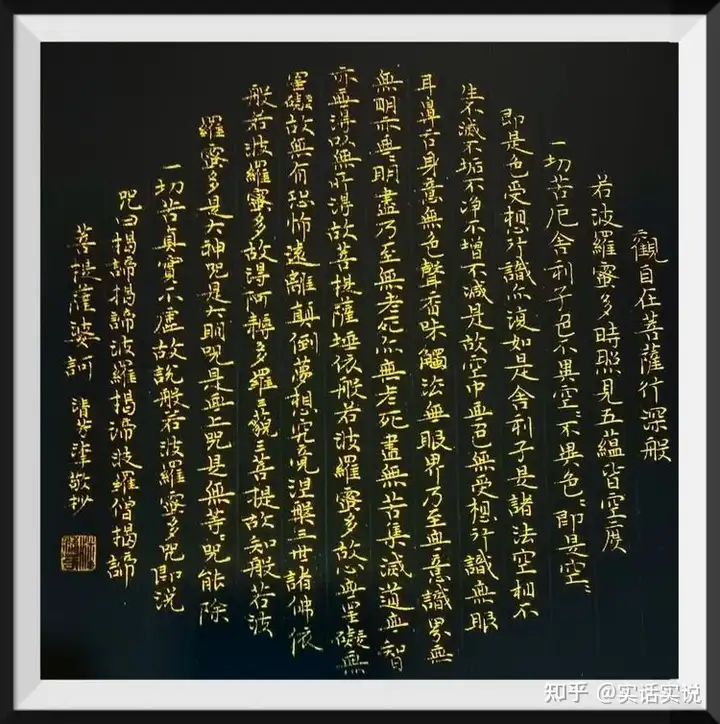 觀自在菩薩行深般
若波羅蜜多時照見五蘊皆空度
一切苦厄舍利子色不異空〻不異色〻即是空〻
即是色受想行識亦復如是舍利子是諸法空相不
生不滅不垢不净不增不減是故空中無色無受想行識無眼
耳鼻舌身意無色聲香味觸法無眼界乃至無意識界無
無明亦無〻明盡乃至無老死亦無老死盡無苦集滅道無智
亦無得以無所得故菩提薩埵依般若波羅蜜多故心無罣礙無
罣礙故無有恐怖遠離顛倒夢想究竟涅槃三世諸佛依
般若波羅蜜多故得阿耨多羅三藐三菩提故知般若波
羅蜜多是大神咒是大明咒是無上咒是無等〻咒能除
一切苦真實不虛故說般若波羅蜜多咒即說
咒曰揭諦揭諦波羅揭諦波羅僧揭諦
菩提薩婆訶 敬抄
知乎 @实话实说